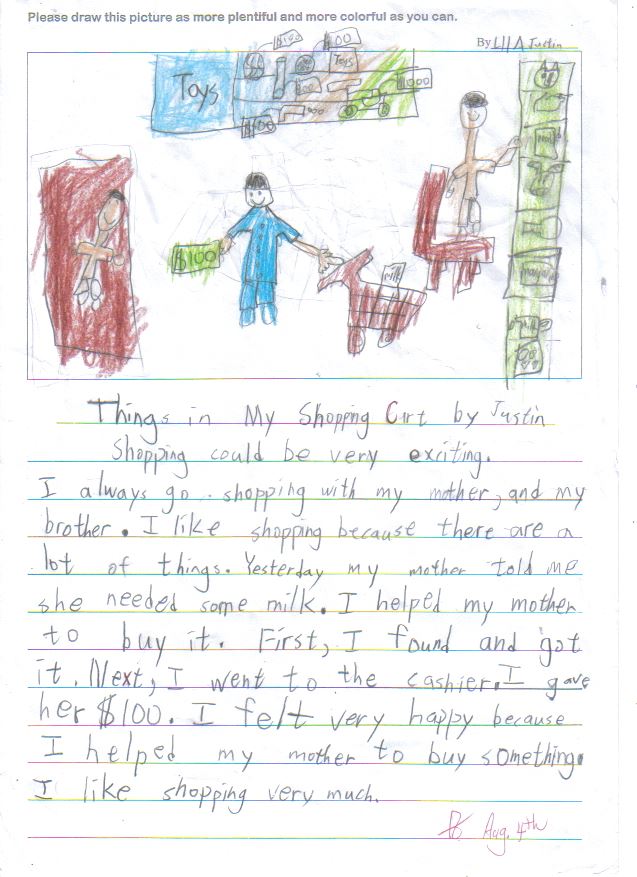 Please draw this picture as more plentiful and more colorful as you can.
By Justin
$100
$100
Toys
Toys
$100
$100
milk
milk
Things in My Shopping Cart by Justin
Shopping could be very exciting.
I always go shopping with my mother, and my
brother. I like shopping because there are a
lot of things. Yesterday my mother told me
she needed some milk. I helped my mother
to buy it. First, I found and got
it. Next, I went to the cashier. I gave
her $100. I felt very happy because
I helped my mother to buy something.
I like shopping very much.
Aug. 4th